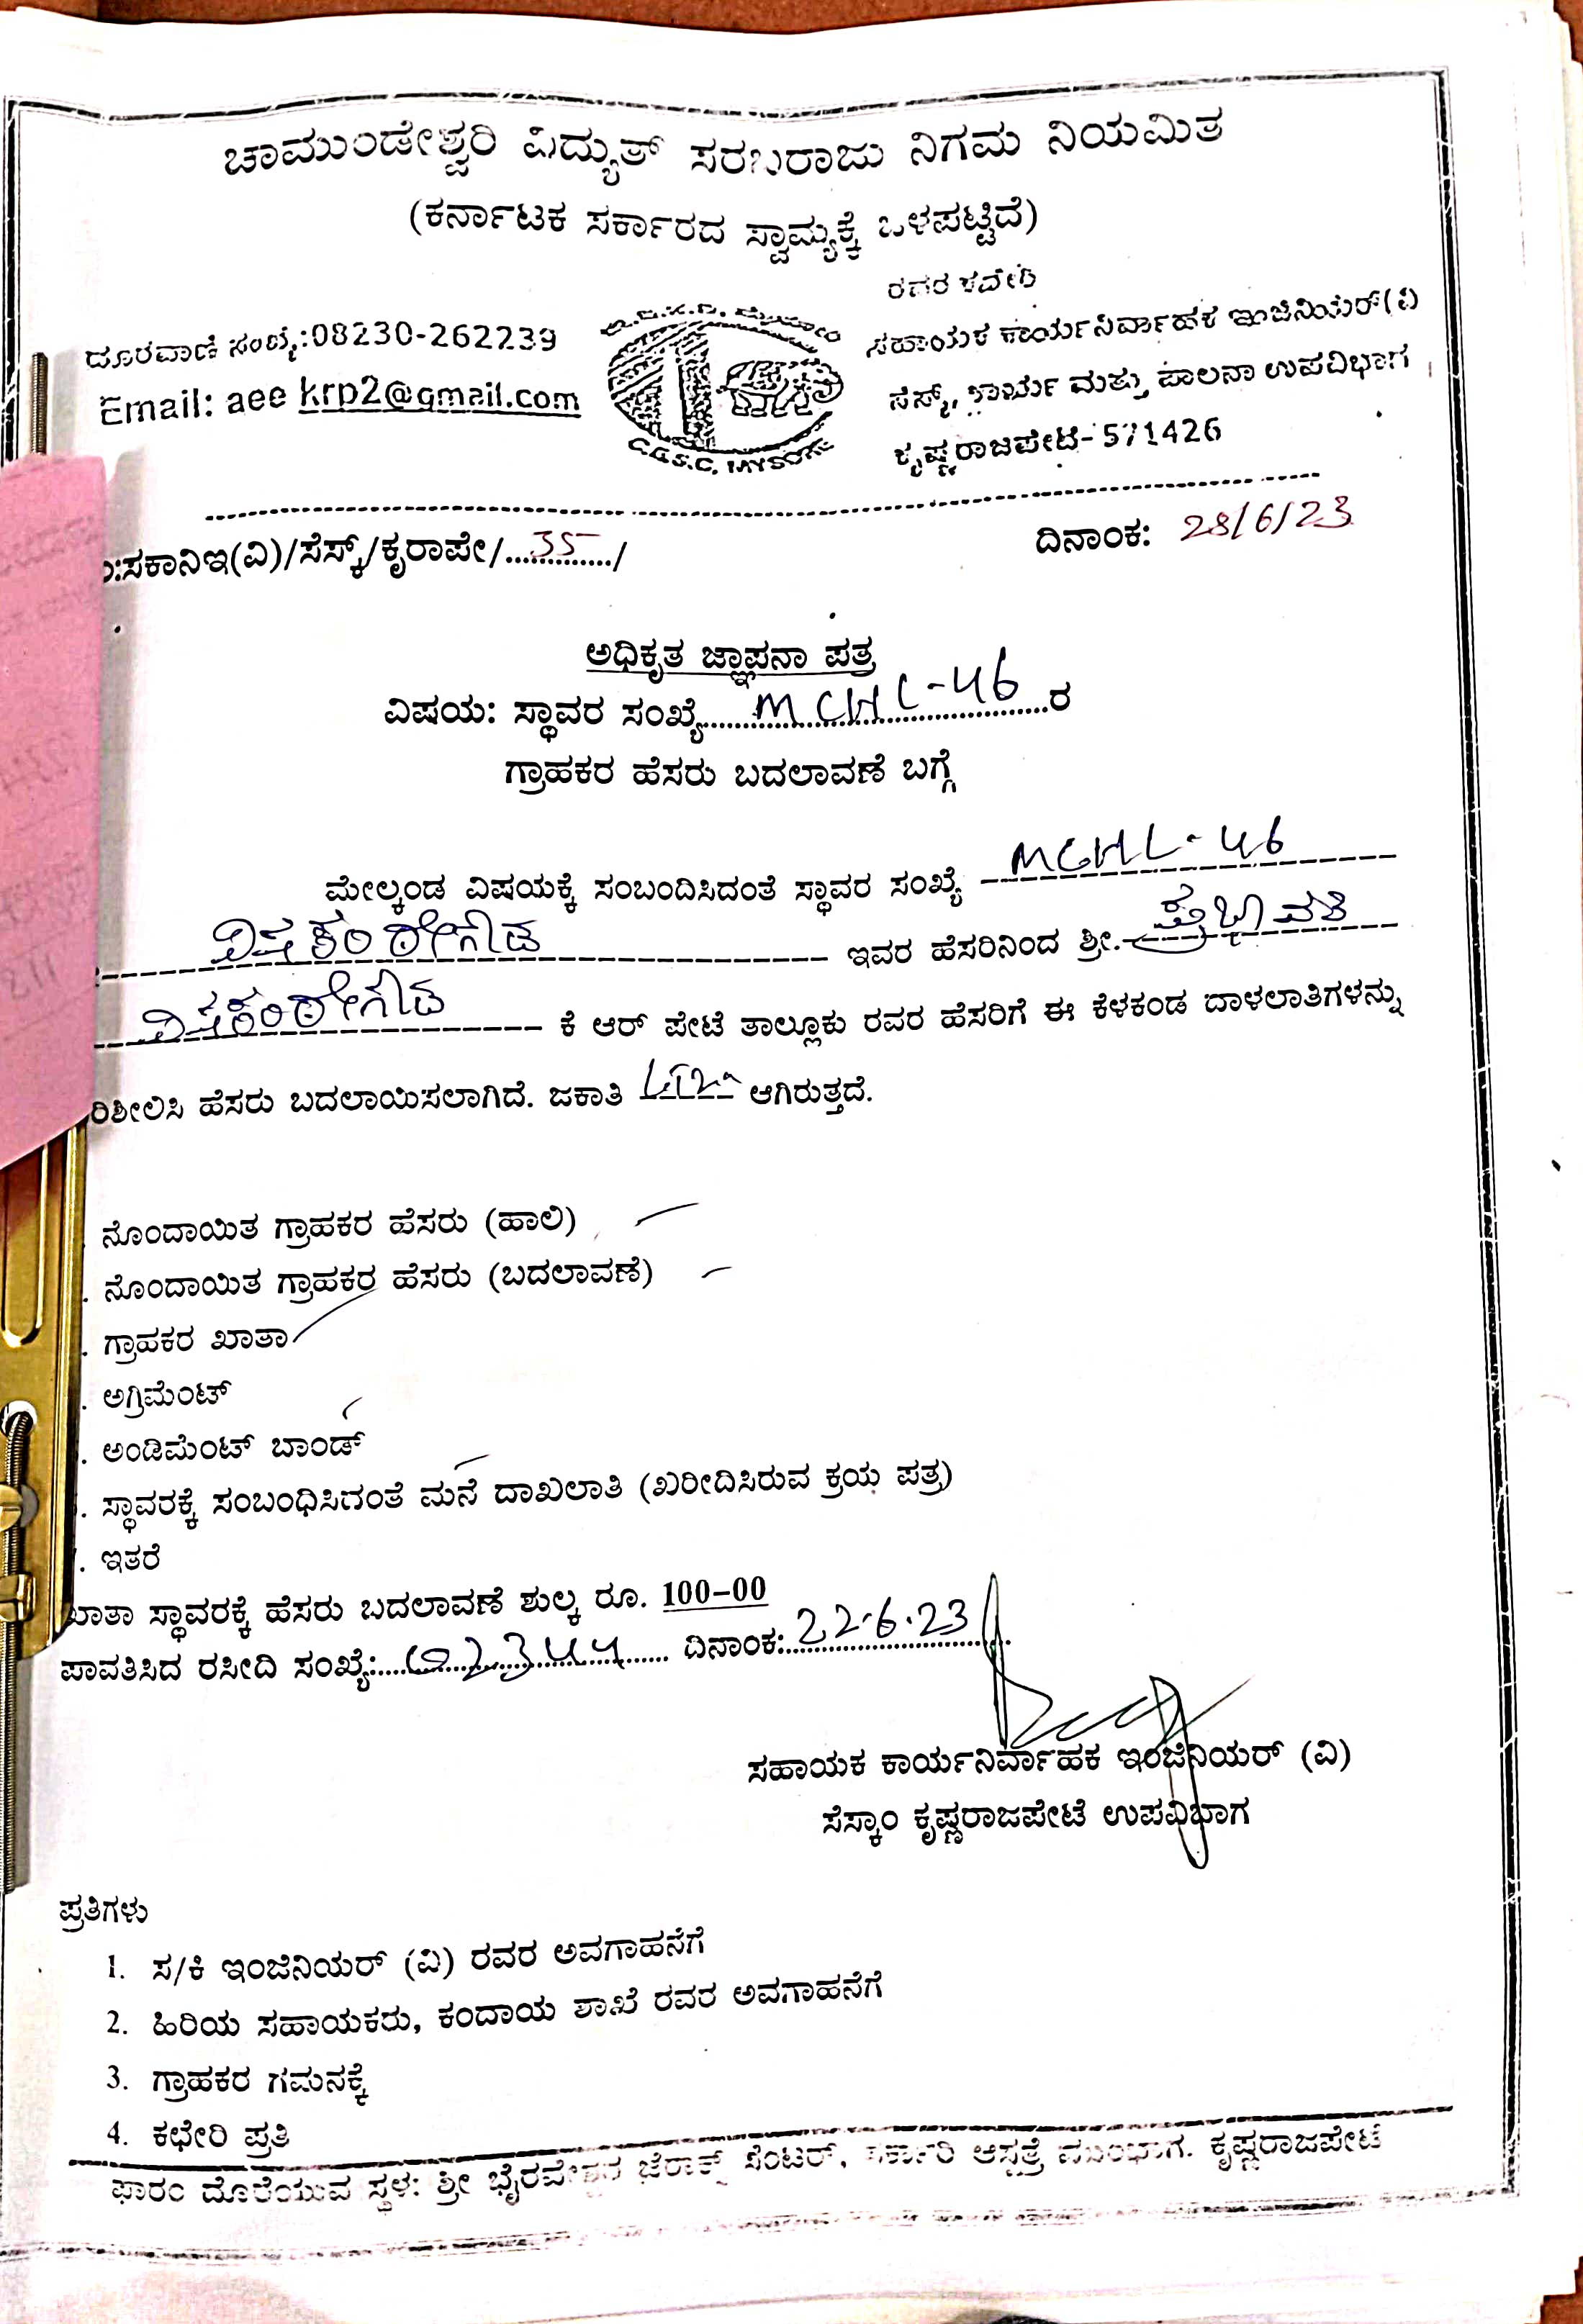 ಚಾಮುಂಡೇಶ್ವರಿ ವಿದ್ಯುತ್ ಸರಬರಾಜು ನಿಗಮ ನಿಯಮಿತ
(ಕರ್ನಾಟಕ ಸರ್ಕಾರದ ಸ್ವಾಮ್ಯಕ್ಕೆ ಒಳಪಟ್ಟಿದೆ)
ರವರ ಕಛೇರಿ
ದೂರವಾಣಿ ಸಂಖ್ಯೆ:08230-262239
ಸಹಾಯಕ ಕಾರ್ಯನಿರ್ವಾಹಕ ಇಂಜಿನಿಯರ್(ವಿ
Email: aee krp2@gmail.com
ಸೆಸ್ಕ್, ಕಾರ್ಯ ಮತ್ತು ಪಾಲನಾ ಉಪವಿಭಾಗ
ಕೃಷ್ಣರಾಜಪೇಟೆ-571426
C.E.S.C, MYSORE
:ಸಕಾನಿಇ(ವಿ)/ಸೆಸ್ಕ್/ಕೃರಾಪೇ/....35....../
ದಿನಾಂಕ: 28/6/23
ಅಧಿಕೃತ ಜ್ಞಾಪನಾ ಪತ್ರ
ವಿಷಯ: ಸ್ಥಾವರ ಸಂಖ್ಯೆ......MCHL-46......ರ
ಗ್ರಾಹಕರ ಹೆಸರು ಬದಲಾವಣೆ ಬಗ್ಗೆ
ಮೇಲ್ಕಂಡ ವಿಷಯಕ್ಕೆ ಸಂಬಂದಿಸಿದಂತೆ ಸ್ಥಾವರ ಸಂಖ್ಯೆ MCHL-46
ವಿಷಕಂಠೇಗೌಡ ಇವರ ಹೆಸರಿನಿಂದ ಶ್ರೀ. ಪ್ರಭಾವತಿ
ವಿಷಕಂಠೇಗೌಡ ಕೆ ಆರ್ ಪೇಟೆ ತಾಲ್ಲೂಕು ರವರ ಹೆಸರಿಗೆ ಈ ಕೆಳಕಂಡ ದಾಳಲಾತಿಗಳನ್ನು
ರಿಶೀಲಿಸಿ ಹೆಸರು ಬದಲಾಯಿಸಲಾಗಿದೆ. ಜಕಾತಿ ಆಗಿರುತ್ತದೆ.
. ನೊಂದಾಯಿತ ಗ್ರಾಹಕರ ಹೆಸರು (ಹಾಲಿ)
. ನೊಂದಾಯಿತ ಗ್ರಾಹಕರ ಹೆಸರು (ಬದಲಾವಣೆ)
. ಗ್ರಾಹಕರ ಖಾತಾ
. ಅಗ್ರಿಮೆಂಟ್
. ಅಂಡಿಮೆಂಟ್ ಬಾಂಡ್
. ಸ್ಥಾವರಕ್ಕೆ ಸಂಬಂಧಿಸಿದಂತೆ ಮನೆ ದಾಖಲಾತಿ (ಖರೀದಿಸಿರುವ ಕ್ರಯ ಪತ್ರ)
. ಇತರೆ
ಖಾತಾ ಸ್ಥಾವರಕ್ಕೆ ಹೆಸರು ಬದಲಾವಣೆ ಶುಲ್ಕ ರೂ. 100-00
ಪಾವತಿಸಿದ ರಸೀದಿ ಸಂಖ್ಯೆ:.......... ದಿನಾಂಕ:22.6.23
ಸಹಾಯಕ ಕಾರ್ಯನಿರ್ವಾಹಕ ಇಂಜಿನಿಯರ್ (ವಿ)
ಸೆಸ್ಕಾಂ ಕೃಷ್ಣರಾಜಪೇಟೆ ಉಪವಿಭಾಗ
ಪ್ರತಿಗಳು
1. ಸ/ಕಿ ಇಂಜಿನಿಯರ್ (ವಿ) ರವರ ಅವಗಾಹನೆಗೆ
2. ಹಿರಿಯ ಸಹಾಯಕರು, ಕಂದಾಯ ಶಾಖೆ ರವರ ಅವಗಾಹನೆಗೆ
3. ಗ್ರಾಹಕರ ಗಮನಕ್ಕೆ
4. ಕಛೇರಿ ಪ್ರತಿ
ಫಾರಂ ದೊರೆಯುವ ಸ್ಥಳ: ಶ್ರೀ ಭೈರವೇಶ್ವರ ಜೆರಾಕ್ಸ್ ಸೆಂಟರ್, ಸರ್ಕಾರಿ ಆಸ್ಪತ್ರೆ ಮುಂಭಾಗ. ಕೃಷ್ಣರಾಜಪೇಟೆ